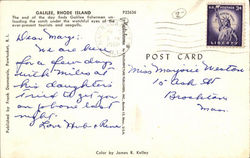 GALILEE, RHODE ISLAND
P22636
The end of the day finds Galilee fishermen un-
loading the catch under the watchful eyes of the
ever-present tourists and seagulls.
Dear Marj:
We are here
for a few days
with Miles at
his daughters
tried to get you
on phone last
night.
Love Hub &
POST CARD
Miss Marjorie Weston
15 Ash St
Brockton
Mass.
LIBERTY
Published by Frank Desmarais, Pawtucket, R. I.
Color by James R. Kelley